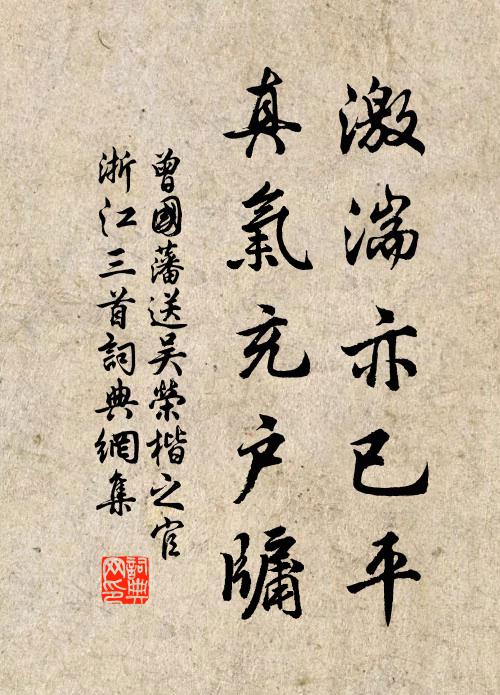 激湍亦已平
真氣充户牖
曾國藩送吴榮楷之官
浙江三首詞典網集
詞典網印